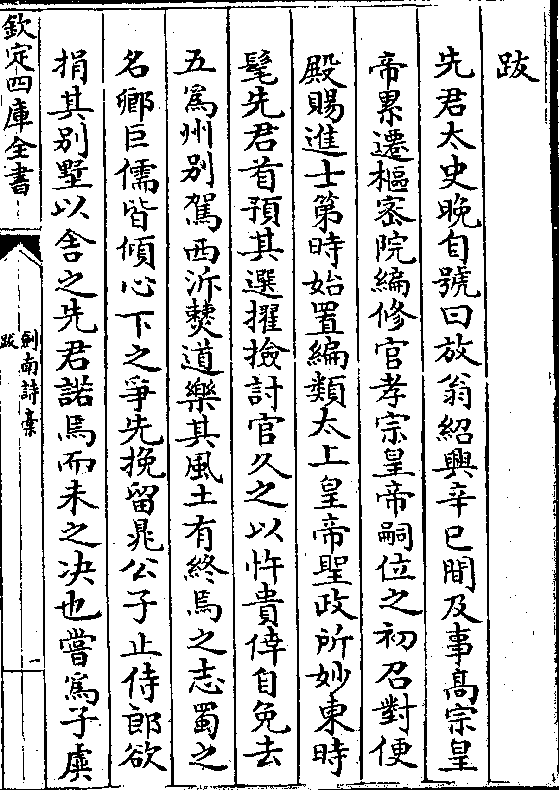 跋
先君太史晚自號曰放翁紹興辛巳間及事高宗皇
帝累遷樞密院編修官孝宗皇帝嗣位之初召對便
殿賜進士第時始置編類太上皇帝聖政所妙柬時
髦先君首預其選擢撿討官久之以忤貴倖自免去
五爲州別駕西泝僰道樂其風土有終焉之志蜀之
名卿巨儒皆傾心下之爭先挽留晁公子止侍郎欲
捐其别墅以舍之先君諾焉而未之决也嘗爲子虡
欽定四庫全書
劍南詩稾
跋
一